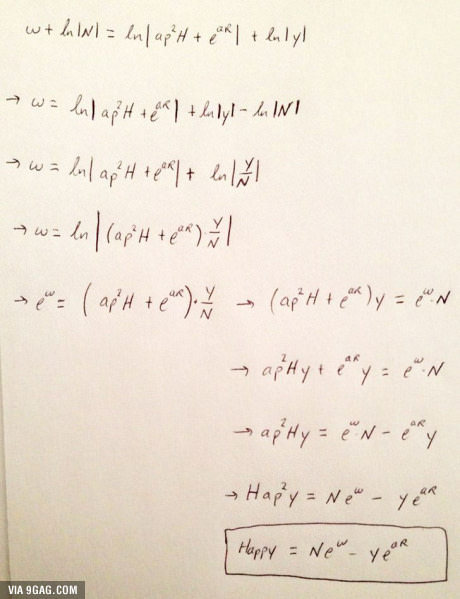 w + ln|N| = ln|ap²H + e^{aR}| + ln|y|
→ w = ln|ap²H + e^{aR}| + ln|y| - ln|N|
→ w = ln|ap²H + e^{aR}| + ln|y/N|
→ w = ln|(ap²H + e^{aR})·y/N|
→ e^w = (ap²H + e^{aR})·y/N → (ap²H + e^{aR})y = e^w·N
→ ap²Hy + e^{aR}y = e^w·N
→ ap²Hy = e^w·N - e^{aR}y
→ Hap²y = Ne^w - ye^{aR}
Happy = Ne^w - ye^{aR}
VIA 9GAG.COM